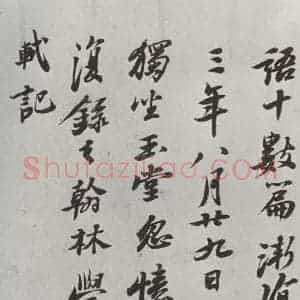 語十數篇漸
三年八月廿九日
獨坐玉堂忽憶
復錄之翰林學
軾記
Shufaziliao.com